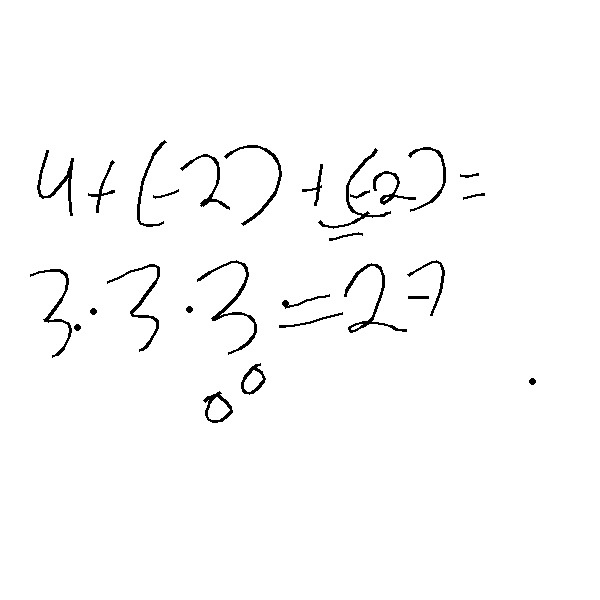 4+(-2)+(-2)=
3·3·3=27
0⁰